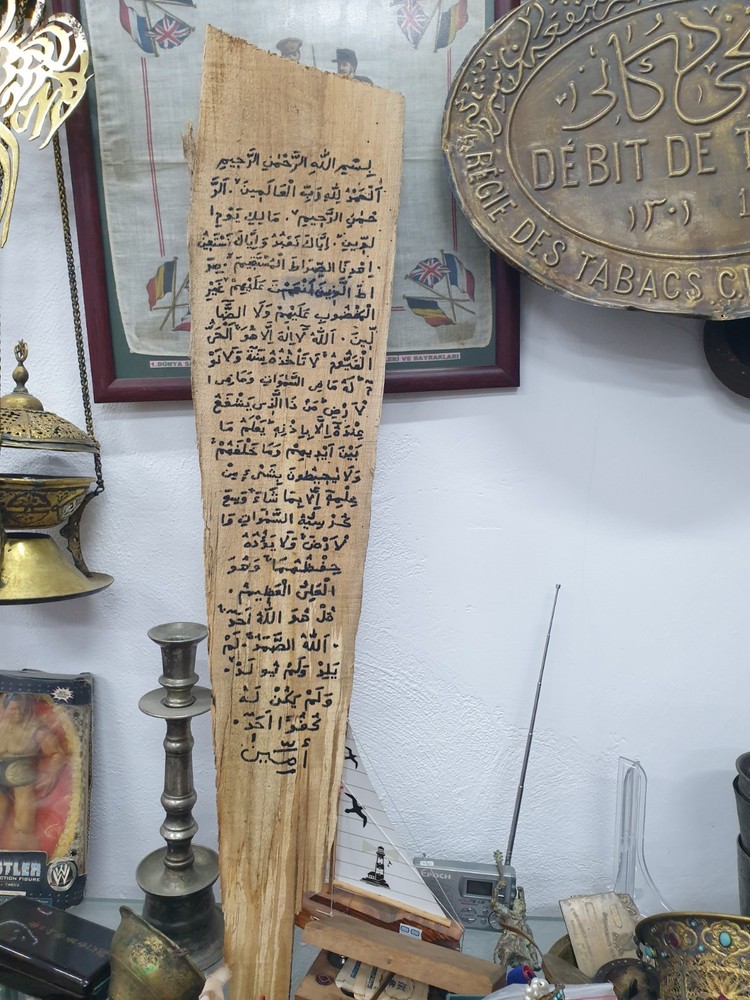 بِسْمِ اللهِ الرَّحْمٰنِ الرَّحِيمِ
اَلْحَمْدُ لِلّٰهِ رَبِّ الْعَالَمِينَ . اَلرَّ
حْمٰنِ الرَّحِيمِ . مَالِكِ يَوْمِ ا
لدِّينِ . اِيَّاكَ نَعْبُدُ وَاِيَّاكَ نَسْتَعِينُ
. اِهْدِنَا الصِّرَاطَ الْمُسْتَقِيمَ . صِرَ
اطَ الَّذِينَ اَنْعَمْتَ عَلَيْهِمْ غَيْرِ
الْمَغْضُوبِ عَلَيْهِمْ وَلَا الضَّا
لِّينَ . اَللهُ لَا اِلٰهَ اِلَّا هُوَ اَلْحَىُّ
الْقَيُّومُ لَا تَأْخُذُهُ سِنَةٌ وَلَا نَوْ
مٌ لَهُ مَا فِى السَّمٰوَاتِ وَمَا فِى ا
لْاَرْضِ مَنْ ذَا الَّذِى يَشْفَعُ
عِنْدَهُ اِلَّا بِاِذْنِهِ يَعْلَمُ مَا
بَيْنَ اَيْدِيهِمْ وَمَا خَلْفَهُمْ
وَلَا يُحِيطُونَ بِشَىْءٍ مِنْ
عِلْمِهِ اِلَّا بِمَا شَاءَ وَسِعَ
كُرْسِيُّهُ السَّمٰوَاتِ وَا
لْاَرْضَ وَلَا يَؤُدُهُ
حِفْظُهُمَا وَهُوَ
الْعَلِىُّ الْعَظِيمُ .
قُلْ هُوَ اللهُ اَحَدٌ
. اَللهُ الصَّمَدُ . لَمْ
يَلِدْ وَلَمْ يُو لَدْ .
وَلَمْ يَكُنْ لَهُ
كُفُوًا اَحَدٌ .
أمين
دكانى
DÉBIT DE T
١٣٠١
RÉGIE DES TABACS C
1. DÜNYA
LERİ VE BAYRAKLARI
EPOCH
TLER
CTION FIGURE
W